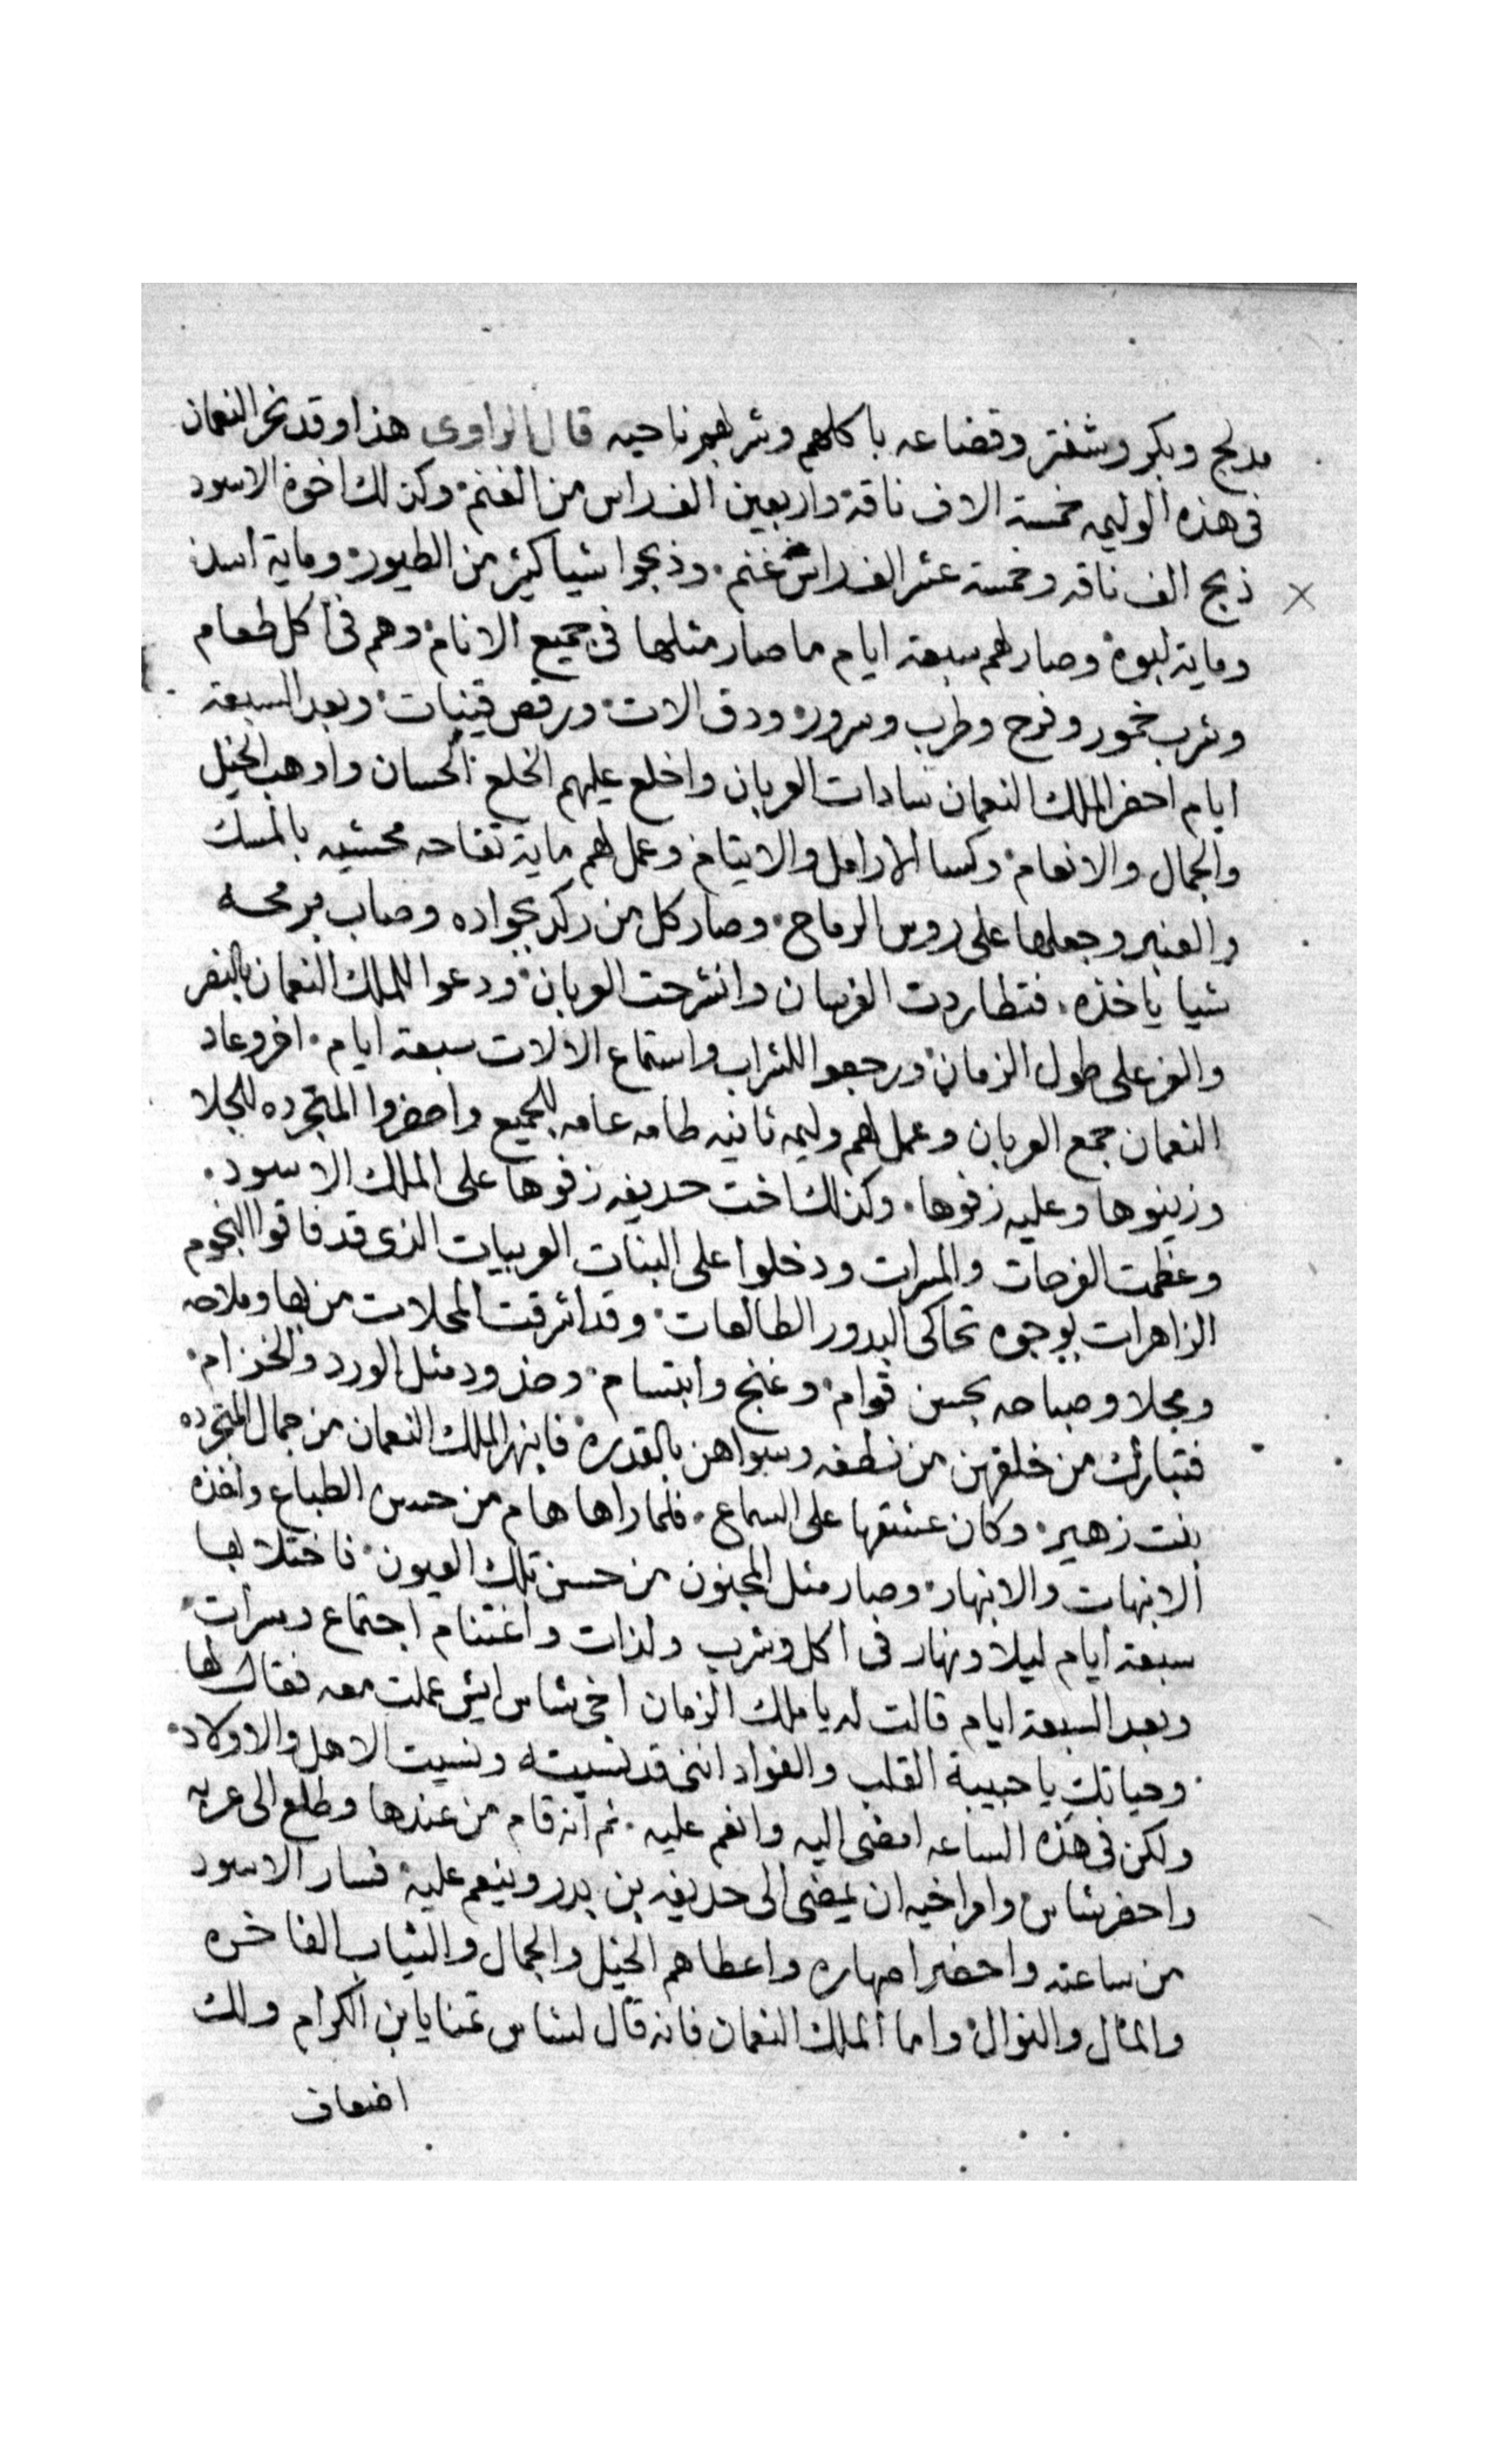 مدلج وبكر وشفتر وقضاعه باكلهم وشربهم ناحيه قال الراوى هذا وقد نحر النعمان
فى هذه الوليمه خمسة الاف ناقة واربعين الف راس من الغنم وكذلك اخوة الاسود
ذبح الف ناقه وخمسة عشر الف راس غنم وذبحوا شيا كثير من الطيور وماية اسد
وماية لبوة وصار لهم سبعة ايام ما صار مثلها فى جميع الانام وهم فى اكل طعام
وشرب خمور وفرح وطرب وسرور ودق الات ورقص قينات وبعد السبعة
ايام احضر الملك النعمان سادات العربان واخلع عليهم الخلع الحسان واوهب الخيل
والجمال والانعام وكسا الارامل والايتام وعمل لهم ماية تفاحه محشيه بالمسك
والعنبر وجعلها على روس الرماح وصار كل من ركد بجواده وصاب برمحه
شيا ياخذه فتطاردت الفرسان وانشرحت العربان ودعوا للملك النعمان بالنصر
والعز على طول الزمان ورجعوا للشراب واستماع الالات سبعة ايام اخر وعاد
النعمان جمع العربان وعمل لهم وليمه ثانيه طامه عامه للجميع واحضروا المتجرده للجلا
وزينوها وعليه زفوها وكذلك اخت حديفه زفوها على الملك الاسود
وعظمت الفرحات والمسرات ودخلوا على البنات العربيات الذى قد فاقوا النجوم
الزاهرات بوجوه تحاكى البدور الطالعات وقد اشرقت المحلات من بها وملاحه
ومجلا وصباحه بحسن قوام وغنج وابتسام وخدود مثل الورد والخزام
فتبارك من خلقهن من نطفه وسواهن بالقدره فانبهر الملك النعمان من جمال المتجرده
بنت زهير وكان عشقها على السماع فلما راها هام من حسن الطباع واخذه
الانبهات والانبهار وصار مثل المجنون من حسن تلك العيون فاختلا بها
سبعة ايام ليلا ونهار فى اكل وشرب ولذات واغتنام اجتماع ومسرات
وبعد السبعة ايام قالت له يا ملك الزمان اخى شاس ايش عملت معه فقال لها
وحياتك يا حبيبة القلب والفواد اننى قد نسيته ونسيت الاهل والاولاد
ولكن فى هذه الساعه امضى اليه وانعم عليه ثم انه قام من عندها وطلع الى عربه
واحضر شاس وامر اخيه ان يمضى الى حديفه بن بدر وينعم عليه فسار الاسود
من ساعته واحضر اصهاره واعطاهم الخيل والجمال والثياب الفاخره
والمال والنوال واما الملك النعمان فانه قال لشاس تمنا يا بن الكرام ولك
اضعاف